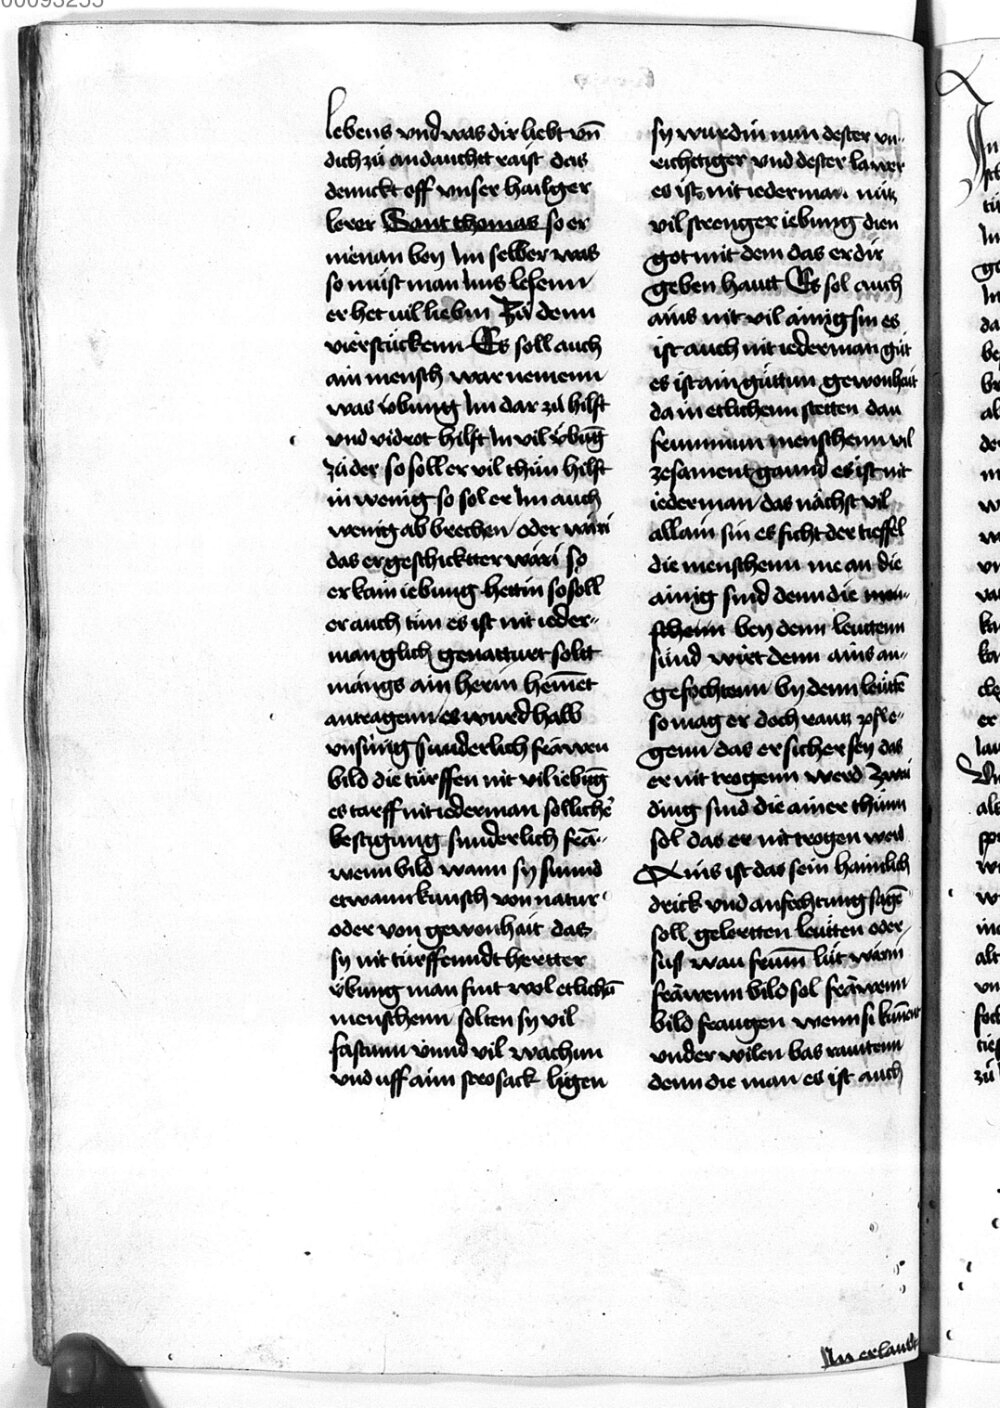 00093253
lebens vnd was dir liebt vn̄
dich zů andauchtt raist das
denückt off vnser hailger
lerer Sant thomas so er
nienan bon Im selber was
so můst man Ims lesenn
er het uil liebin Zů denn
vierstückenn Es soll auch
ain mensch war nemenn
was v̈bung Im dar zů hilft
vnd vidrot hilft In vil v̈bug̅
zů der so soll er vil thůn hilft
in wenig so sol er Im auch
wenig ab brechen oder wäri
das er geschicktter wäri so
er kain iebung hettin so soll
er auch tůn es ist nit ieder-
manglich genatturt soltt
mängs ain herin hem̄et
antragenn es wurd halb
vnsinig sunderlich fräwen
bild die türffen nit vil iebug̅
es tarff nit iederman sollichē
bestigung sunderlich frā-
wenn bild wann sy sinnd
etwann künsch von natur
oder von gewonhait das
sy nit türffenndt hertter
v̈bung man fint wol etlichā
menschenn solten sy vil
fastunn vnnd vil wachun
vnd uff aim strosack ligen
sy wurdin nun dester vn-
richttiger vnd dester lawer
es ist nit iederman nütz
vil strenger iebung dien
got mit dem das er dir
geben hautt Es sol auch
ains nit vil ainig sin es
ist auch nit iederman gůt
es ist ain gůttun gewonhait
da in etlichenn stetten dan
frummun menschenn vil
zesament gannd es ist nit
iederman das nächst vil
allain sin es ficht der tieffel
die menschenn me an die
ainig sind denn die men-
schenn bey denn leuttenn
sünd wirt denn ains an-
gefochtenn by denn leüttē
so mag er doch rautz pfle-
genn das er sicher sey das
er nit trogenn werd Zwai
ding sind die ainer thůnn
sol das er nit trogen werd
Ains ist das sein haimlich
drick vnd anfechtung sagē
soll gelertten leutten oder
sust wan frum̄ lüt wärin
fräwenn bild sol fräwenn
bild fraugen wenn si kun̄ent
vnder wilen bas rauttenn
denn die man es ist auch
Im erlaubt